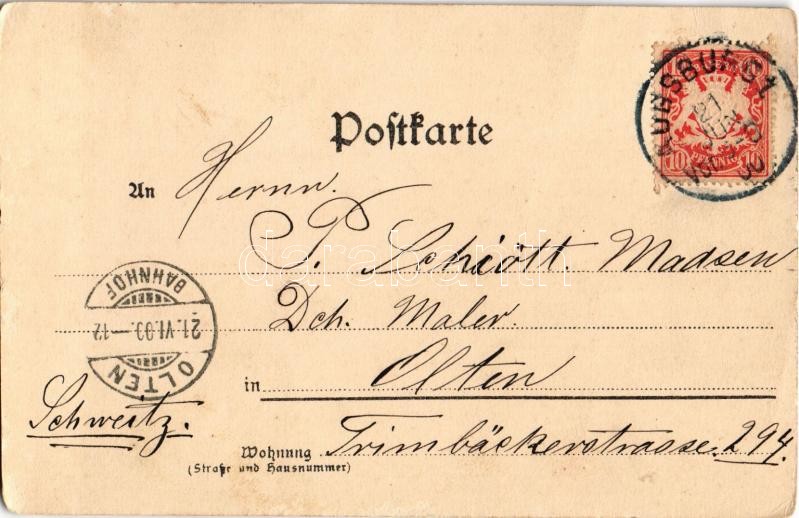 Postkarte
AUGSBURG 1
21
10 PFENNIG 10
An Herrn.
P. Schiött. Madsen
Dch. Maler.
in Olten
Schweitz.
Wohnung Trimbäckerstrasse. 294.
(Straße und Hausnummer)
OLTEN
21. VI. 00. – 12
BAHNHOF
darabanth